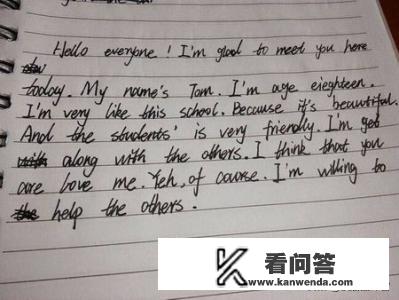 Hello everyone! I'm glad to meet you here
today. My name's Tom. I'm age eieghteen.
I'm very like this school. Because it's beautiful.
And the students' is very friendly. I'm get
along with the others. I think that you
are love me. Yeh, of course. I'm willing to
help the others.
K 看问答
www.kanwenda.com